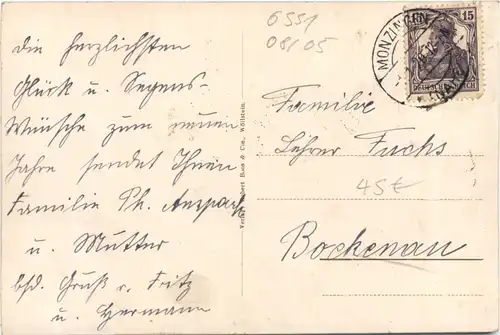 die herzlichsten
Glück u. Segens-
Wünsche zum neuen
Jahre sendet Ihnen
Familie Ph. Anspach
u. Mutter
bsd. Gruß v. Fritz
u. Hermann
6551
08/05
MONZINGEN
15
DEUTSCHES REICH
Familie
Lehrer Fuchs
45€
Bockenau
& Cie., Wöllstein.